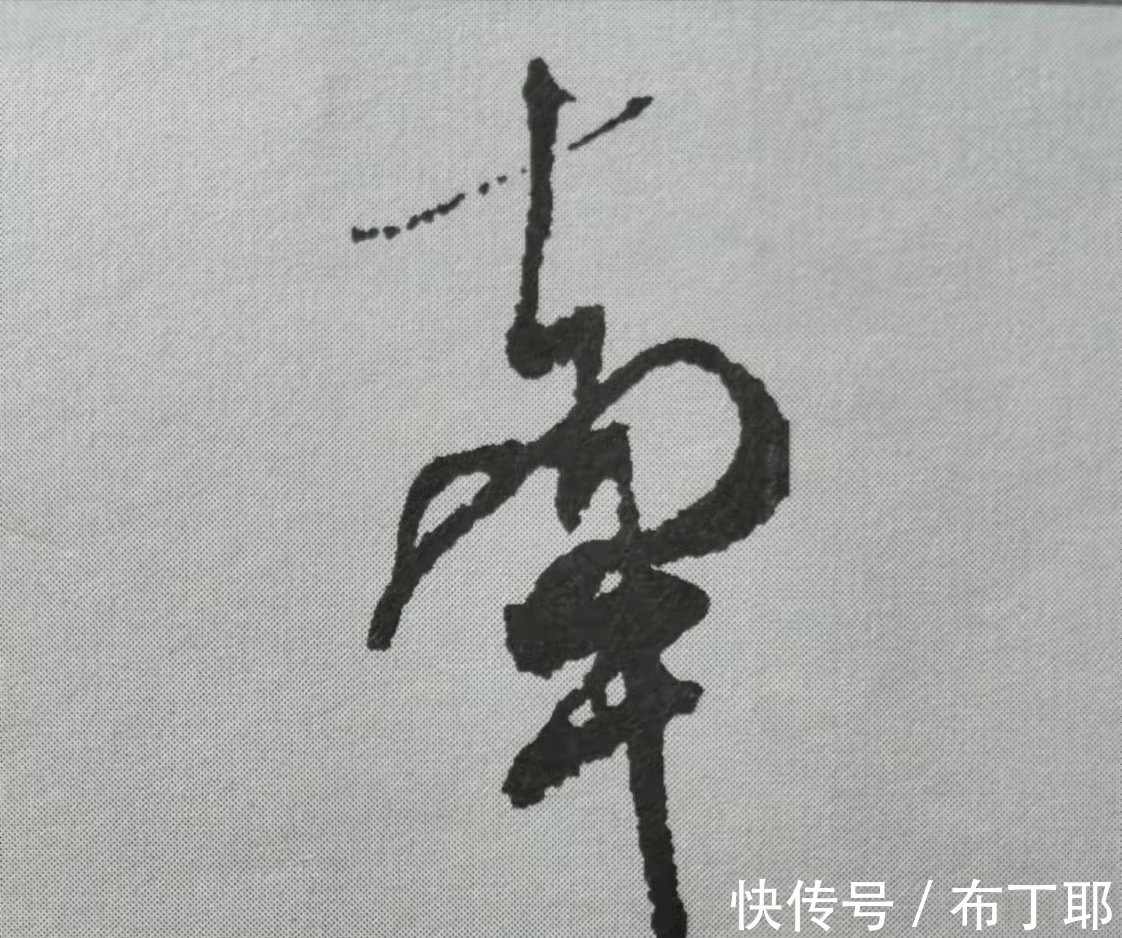 南
快传号 / 布丁耶